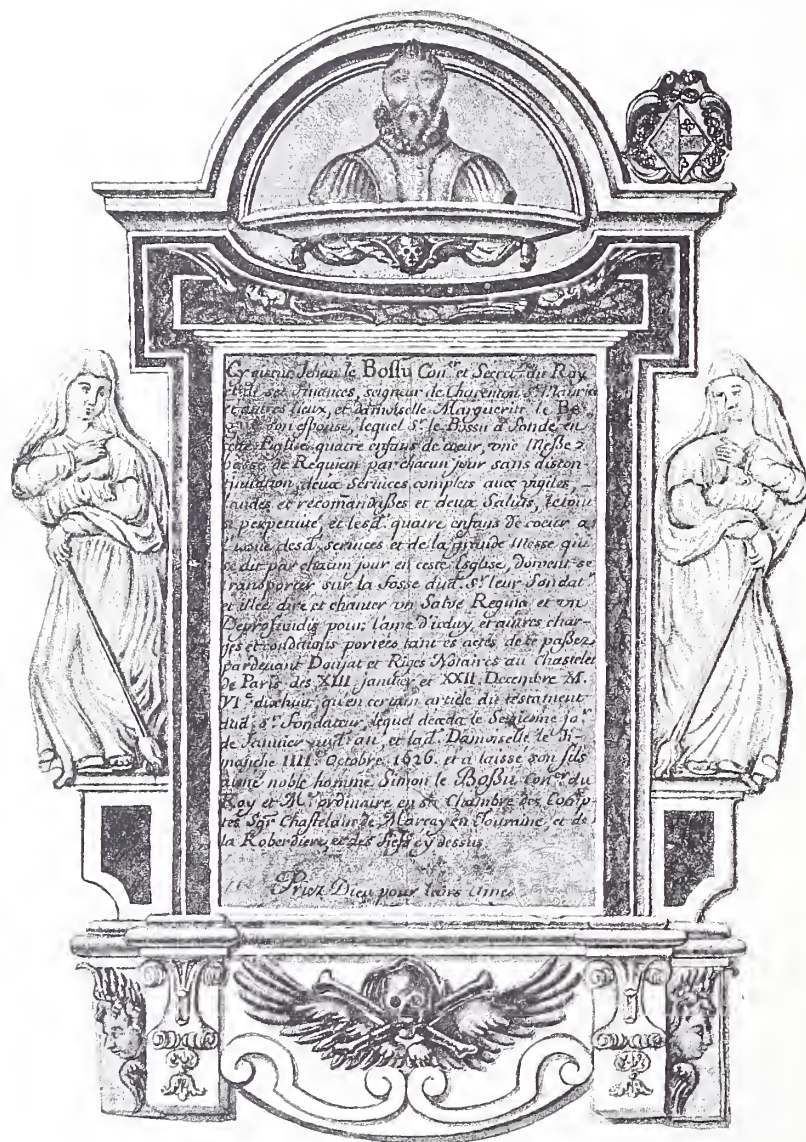 Cy gisent Jehan le Bossu Con.er et Secret.re du Roy
et de ses finances, seigneur de Charenton S.t Maurice
et autres lieux, et Damoiselle Marguerite le Be
son espouse, lequel S.r le Bossu a fondé en
ceste Eglise quatre enfans de coeur, une Messe
basse de Requiem par chacun jour sans discon-
tinuation, deux services complets avec vigiles,
laudes et recomandasses et deux Saluts, le tout
a perpetuité, et lesd. quatre enfans de coeur a
l'issue desd. services et de la grande Messe qui
se dit par chacun jour en ceste Esglise, doivent se
transporter sur la fosse dud. S.r leur fondat.r
et illec dire et chanter un Salve Regina et un
Deprofundis pour l'ame d'iceluy, et autres char-
ges et conditions portées tant es actes de ce passez
pardevant Doujat et Riges Notaires au Chastelet
de Paris des XIII janvier et XXII. Decembre M.
VI.c dixhuit, qu'en certain article du testament
dud. S.r fondateur, lequel deceda le jo.r
de Janvier aud. an, et lad. Damoiselle le Di-
manche IIII.e Octobre 1626. et a laissé son fils
aisné noble homme Simon le Bossu Con.er du
Roy et M.e ordinaire en sa Chambre des Comp-
tes Sg.r Chastelain de Marcay en Touraine, et de
la Roberdiere, et des fiefs cy dessus
Priez Dieu pour leurs Ames